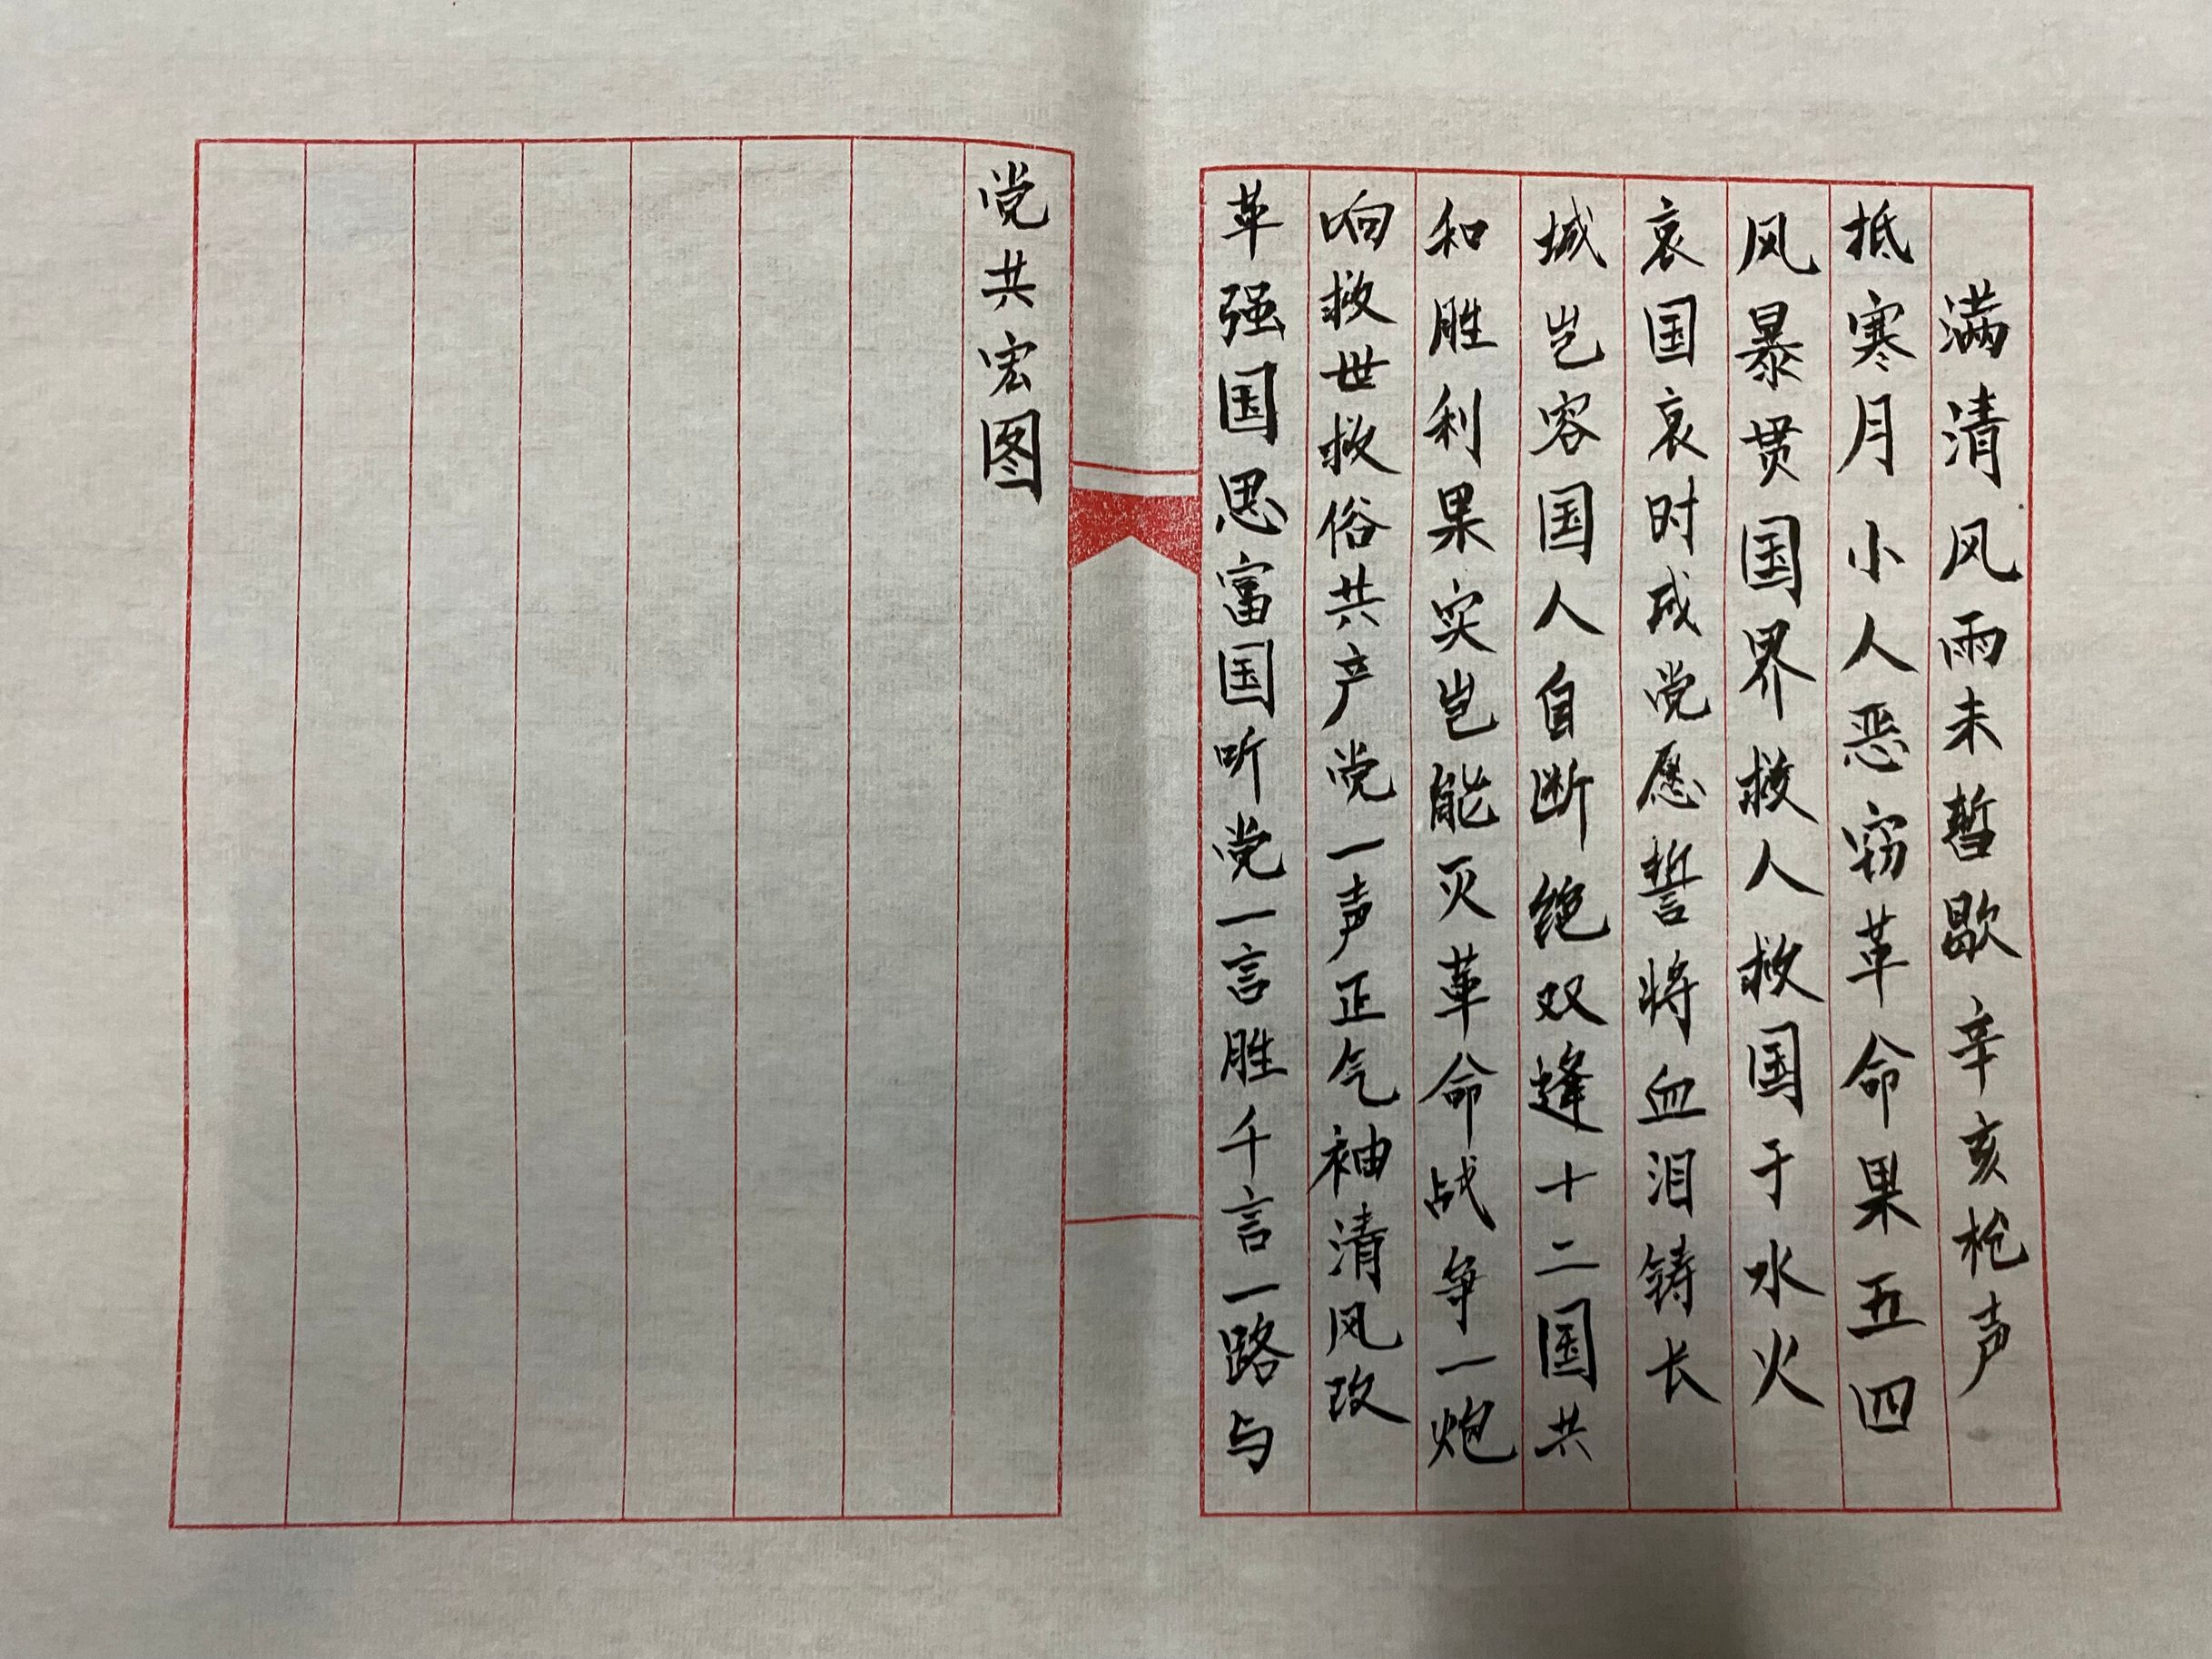 满清风雨未暂歇辛亥枪声
抵寒月小人恶窃革命果五四
风暴贯国界救人救国于水火
哀国哀哀时成党愿誓将血泪铸长
城岂容国人自断绝双逢十二国共
和胜利果实岂能灭革命战争一炮
响救世救俗共产党一声正气袖清风改
革强国思富国听党一言胜千言一路与
党共宏图